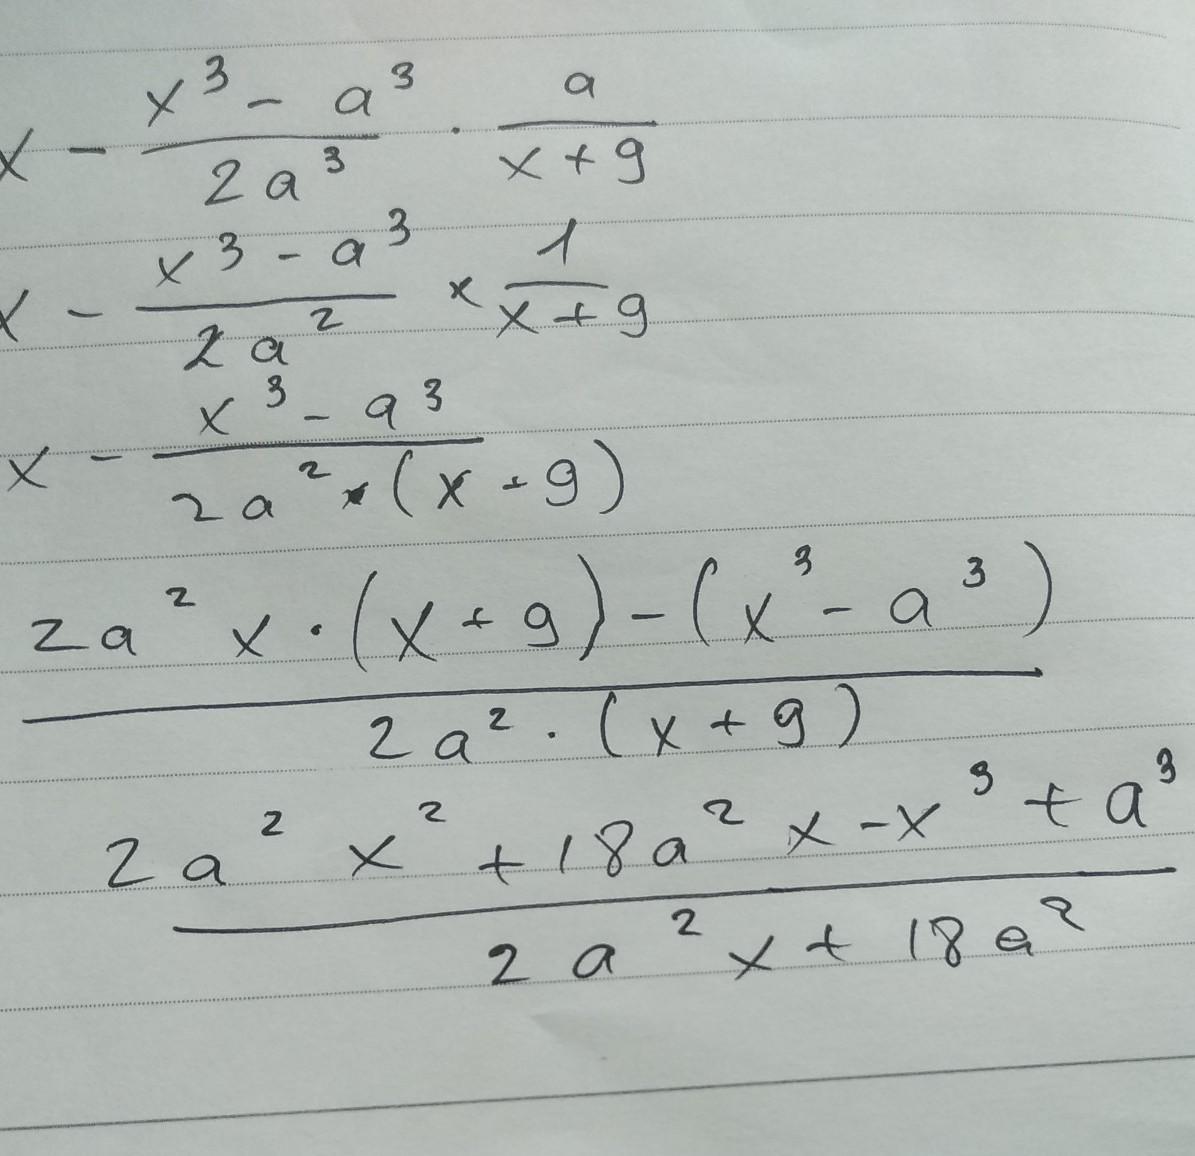 x - \frac{x^3 - a^3}{2a^3} \cdot \frac{a}{x+9}
x - \frac{x^3 - a^3}{2a^2} \times \frac{1}{x+9}
x - \frac{x^3 - a^3}{2a^2 \times (x+9)}
\frac{2a^2 x \cdot (x+9) - (x^3 - a^3)}{2a^2 \cdot (x+9)}
\frac{2a^2 x^2 + 18a^2 x - x^3 + a^3}{2a^2 x + 18a^2}